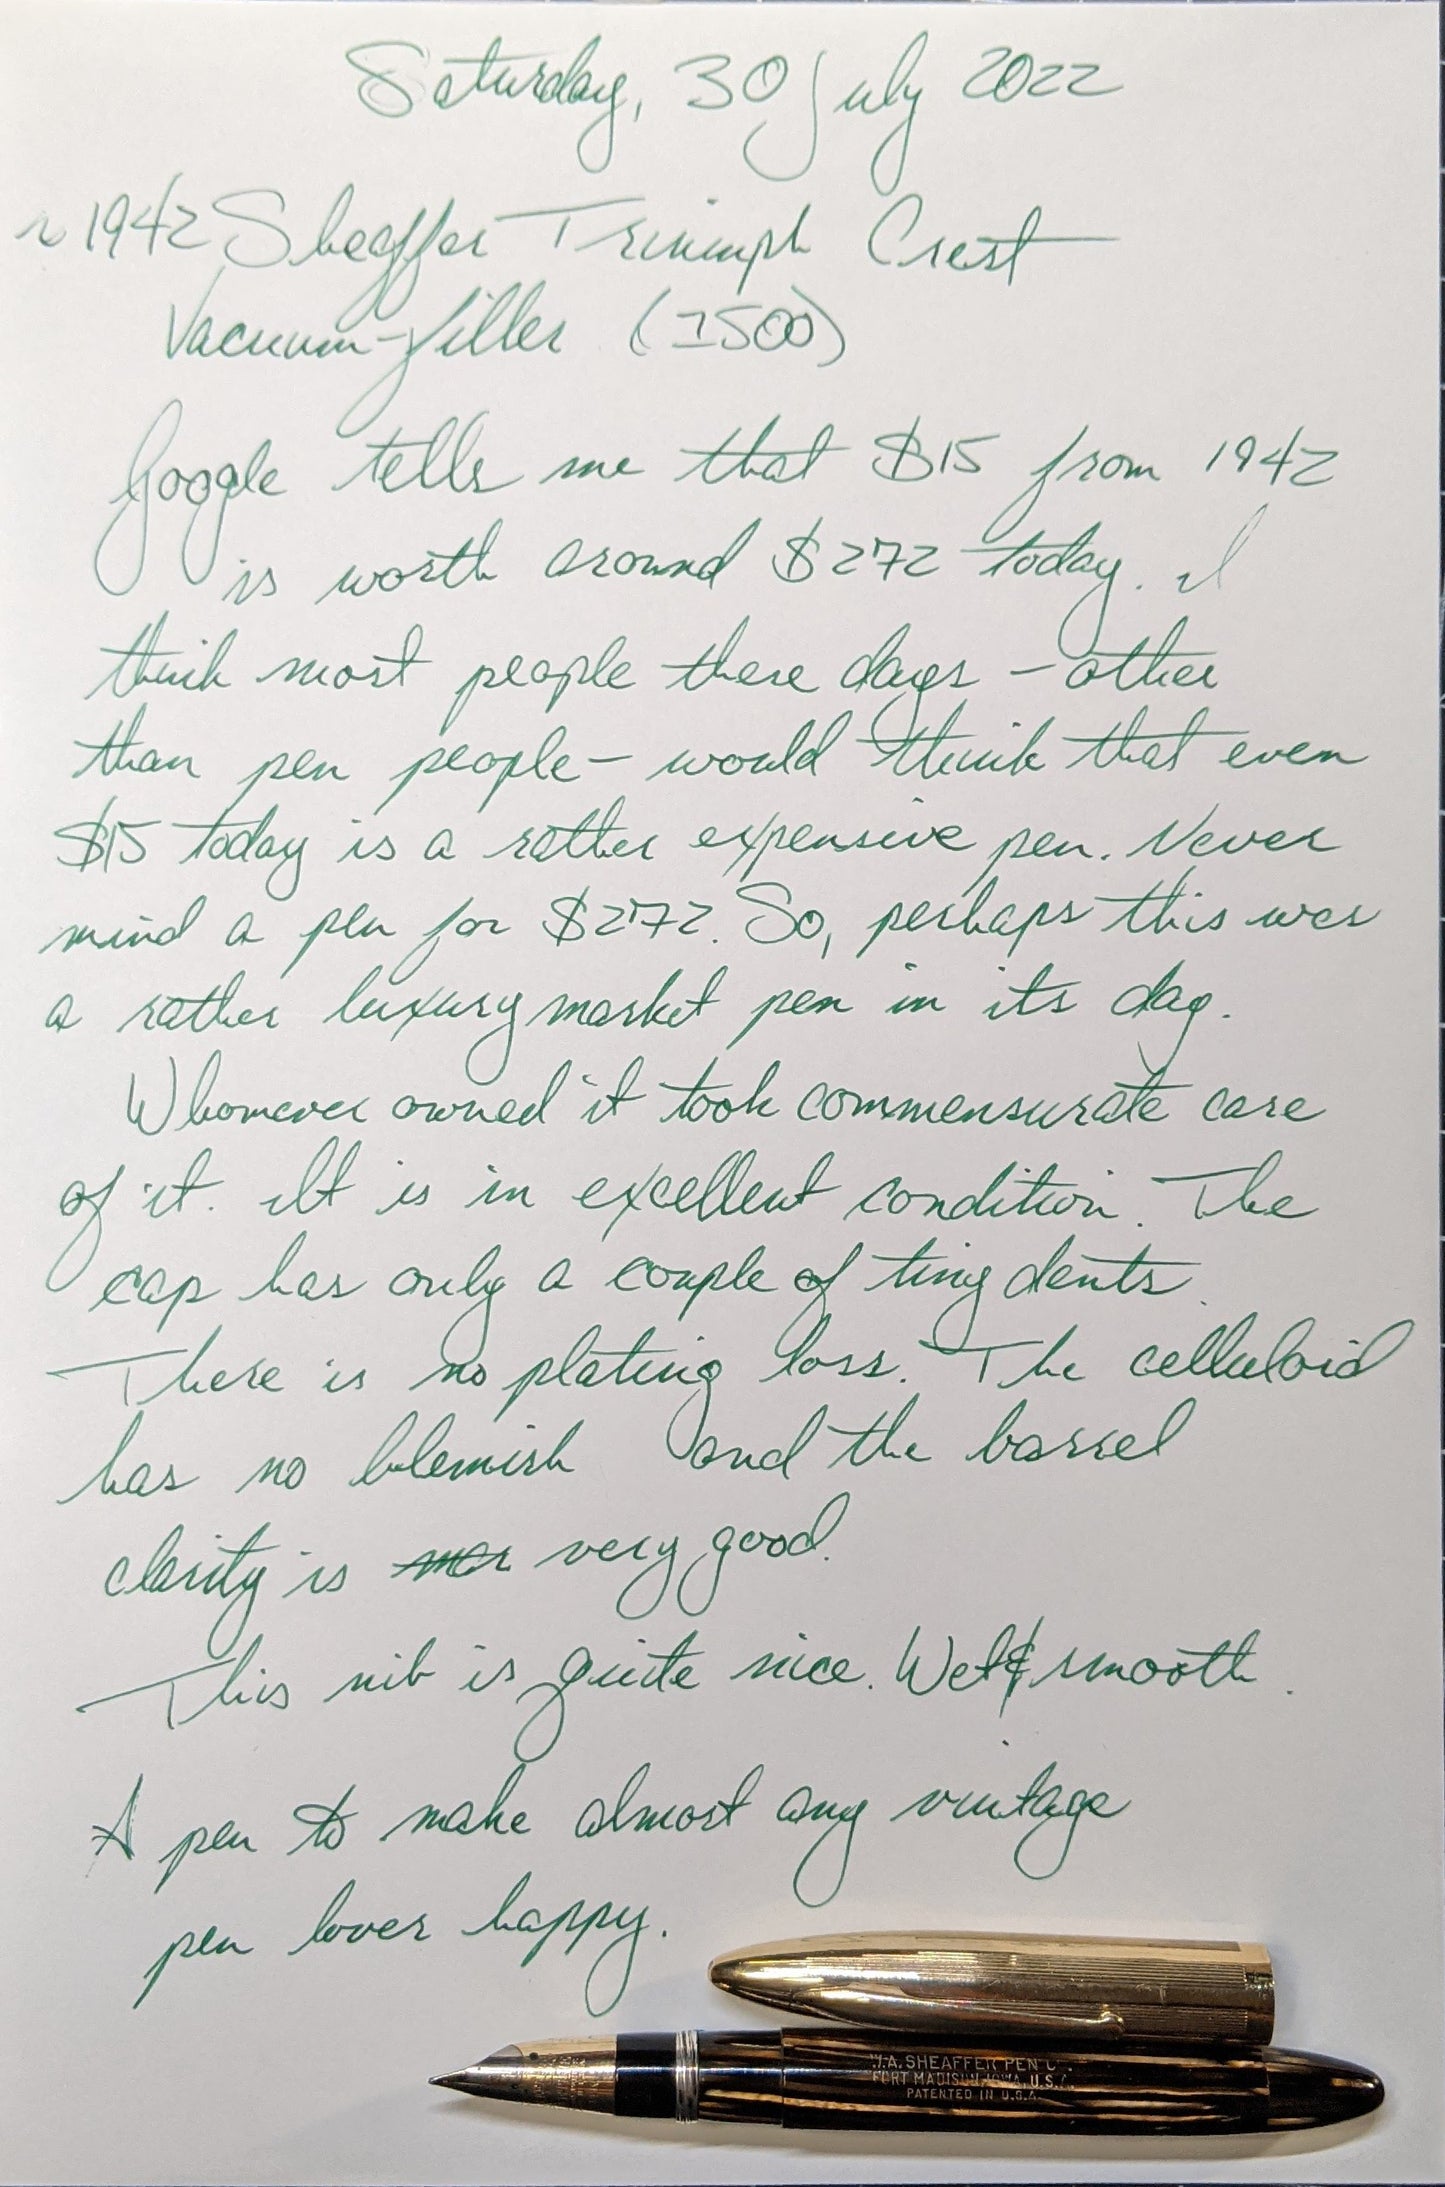 Saturday, 30 July 2022
~1942 Sheaffer Triumph Crest
Vacuum-filler (1500)
Google tells me that $15 from 1942
is worth around $272 today. I
think most people these days - other
than pen people - would think that even
$15 today is a rather expensive pen. Never
mind a pen for $272. So, perhaps this was
a rather luxury market pen in its day.
Whomever owned it took commensurate care
of it. It is in excellent condition. The
cap has only a couple of tiny dents.
There is no plating loss. The celluloid
has no blemish and the barrel
clarity is very good.
This nib is quite nice. Wet & smooth.
A pen to make almost any vintage
pen lover happy.
W.A. SHEAFFER PEN C.
FORT MADISON, IOWA, U.S.A.
PATENTED IN U.S.A.